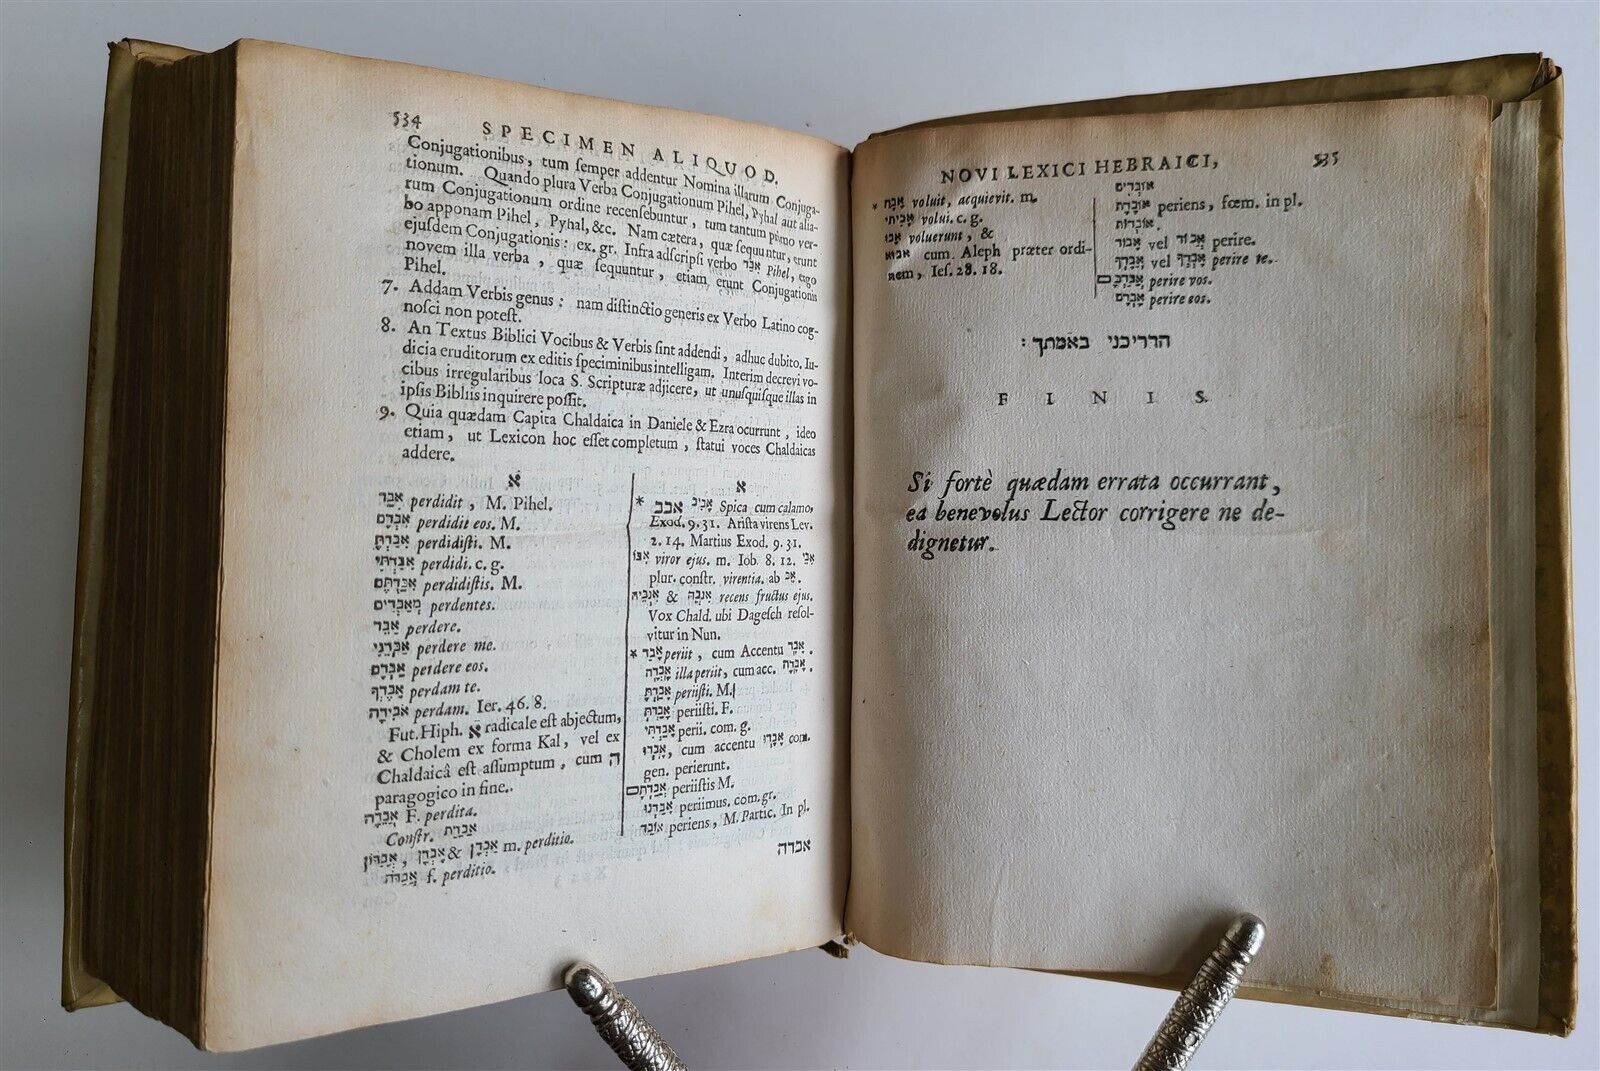 534
SPECIMEN ALIQUOD.
Conjugationibus, tum ſemper addentur Nomina illarum Conjuga-
tionum. Quando plura Verba Conjugationum Pihel, Pyhal aut alia-
rum Conjugationum ordine recenſebuntur, tum tantum primo ver-
bo apponam Pihel, Pyhal, &c. Nam cætera, quæ ſequuntur, erunt
ejuſdem Conjugationis: ex. gr. Infra adſcripſi verbo אבד Pihel, ergo
novem illa verba, quæ ſequuntur, etiam erunt Conjugationis
Pihel.
7. Addam Verbis genus: nam diſtinctio generis ex Verbo Latino cog-
noſci non poteſt.
8. An Textus Biblici Vocibus & Verbis ſint addendi, adhuc dubito. Iu-
dicia eruditorum ex editis ſpeciminibus intelligam. Interim decrevi vo-
cibus irregularibus loca S. Scripturæ adjicere, ut unuſquiſque illas in
ipſis Bibliis inquirere poſſit.
9. Quia quædam Capita Chaldaica in Daniele & Ezra ocurrunt, ideo
etiam, ut Lexicon hoc eſſet completum, ſtatui voces Chaldaicas
addere.
א
אִבַּד perdidit, M. Pihel.
אִבְּדָם perdidit eos. M.
אִבַּדְתָּ perdidiſti. M.
אִבַּדְתִּי perdidi. c. g.
אִבַּדְתֶּם perdidiſtis. M.
מְאַבְּדִים perdentes.
אַבֵּד perdere.
אַבְּדֵנִי perdere me.
אַבְּדָם perdere eos.
אֲבֶּדְךָ perdam te.
אֹבִידָה perdam. Ier. 46. 8.
Fut. Hiph. א radicale eſt abjectum,
& Cholem ex forma Kal, vel ex
Chaldaicâ eſt aſſumptum, cum ה
paragogico in fine.
אֲבֵדָה F. perdita.
Conſtr. אֲבֵדַת
אֲבַדּוֹן, אֲבַדֹּן & אָבְדָן m. perditio.
אֲבַדֹּה f. perditio.
א
* אבב אָבִיב Spica cum calamo,
Exod. 9. 31. Ariſta virens Lev.
2. 14. Martius Exod. 9. 31.
אִבּוֹ viror ejus. m. Iob. 8. 12. אִבֵּי
plur. conſtr. virentia. ab אֵב.
אִנְבֵּהּ & אִנְבֵּיהּ recens fructus ejus.
Vox Chald. ubi Dageſch reſol-
vitur in Nun.
* אָבַד periit, cum Accentu אָבָד.
אָבְדָה illa periit, cum acc. אָבָדָה.
אָבַדְתָּ periiſti. M.
אָבַדְתְּ periiſti. F.
אָבַדְתִּי perii. com. g.
אָבְדוּ, cum accentu אָבָדוּ com.
gen. perierunt.
אֲבַדְתֶּם periiſtis M.
אָבַדְנוּ periimus. com. gr.
אוֹבֵד periens, M. Partic. In pl.
אבדה
NOVI LEXICI HEBRAICI,
535
* אָבָה voluit, acquievit. m.
אָבִיתִי volui. c. g.
אָבוּ voluerunt, &
אבוא cum Aleph præter ordi-
nem, Ieſ. 28. 18.
אוֹבְדִים
אוֹבֶדֶת periens, fœm. in pl.
אוֹבְדוֹת.
אָבוֹד vel אֲבוֹד perire.
אֲבָדְךָ vel אָבְדְךָ perire te.
אֲבָדְכֶם perire vos.
אָבְדָם perire eos.
הדריכני באמתך :
FINIS.
Si fortè quædam errata occurrant,
ea benevolus Lector corrigere ne de-
dignetur.